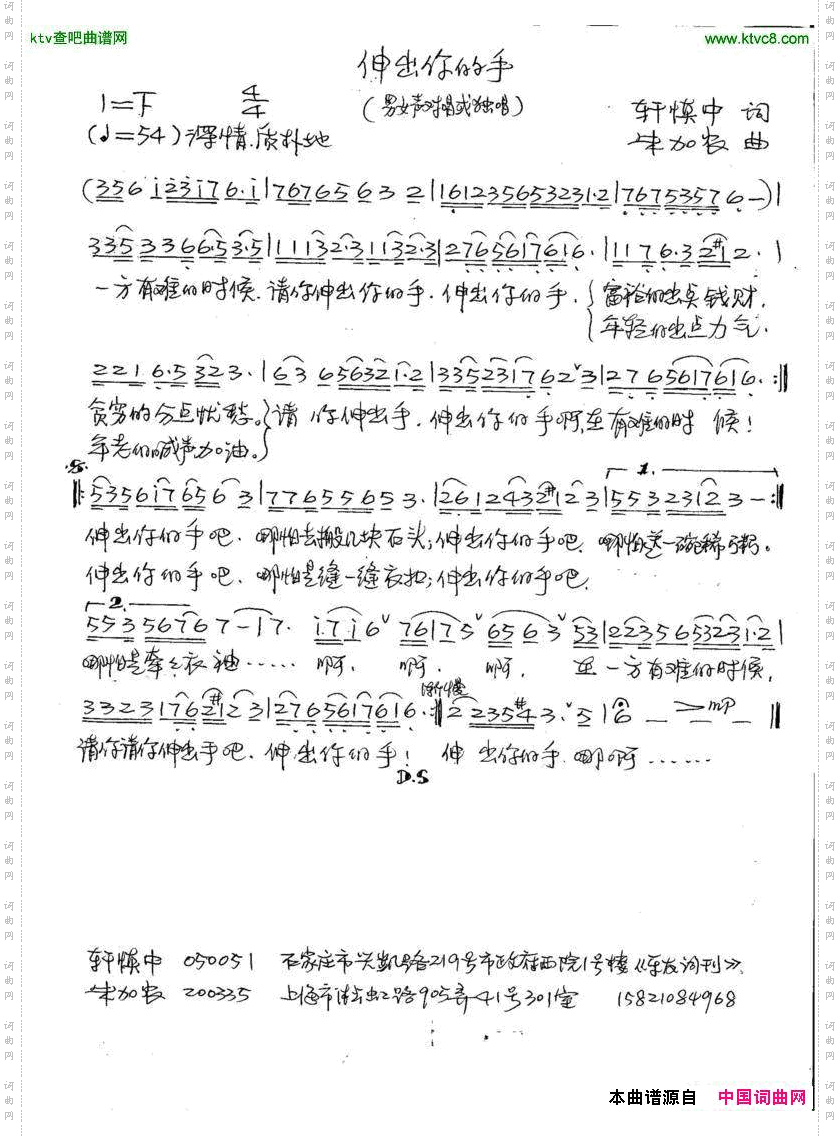 ktv查吧曲谱网 www.ktvc8.com
伸出你的手
1=F 4/4 (男女声对唱或独唱) 轩慎中 词
(♩=54)深情、质朴地 朱加农 曲
(356 i23i76·i|7676563 2|161235653231·2|767535576—)|
335336 6·53·5|11132·31132·3|2765617616·|1176·32#12·|
一方有难的时候,请你伸出你的手,伸出你的手,{富裕的出点钱财,
年轻的出点力气,
2216·5323·|63 656321·2|33523176 2ˇ3|276 5617616·:||
贫穷的分点忧愁。}请 你伸出手,伸出你的手啊,在有难的时 候!
年老的喊声加油。
·S· 1.
||:53561765 6 3|77655653·|2612432#12 3|55323123—:||
伸出你的手吧,哪怕去搬几块石头;伸出你的手吧,哪怕是一碗稀粥。
伸出你的手吧,哪怕是缝一缝衣扣;伸出你的手吧,
2.
55356767—17· i7i6ˇ 76175ˇ 6563ˇ 53|22356532 31·2|
哪怕是牵衣袖…… 啊, 啊, 啊, 在一方有难的时候,
渐慢
332317 62#12 3|2765617616·:||2235#43·ˇ5|6 — — — mp||
请你请你伸出手吧,伸出你的手! 伸 出你的手 哪啊……
D.S
轩慎中 050051 石家庄市兴凯路219号市政府西院1号楼《乐友词刊》
朱加农 200335 上海市 路905弄41号301室 15821084968
本曲谱源自 中国词曲网
词曲网